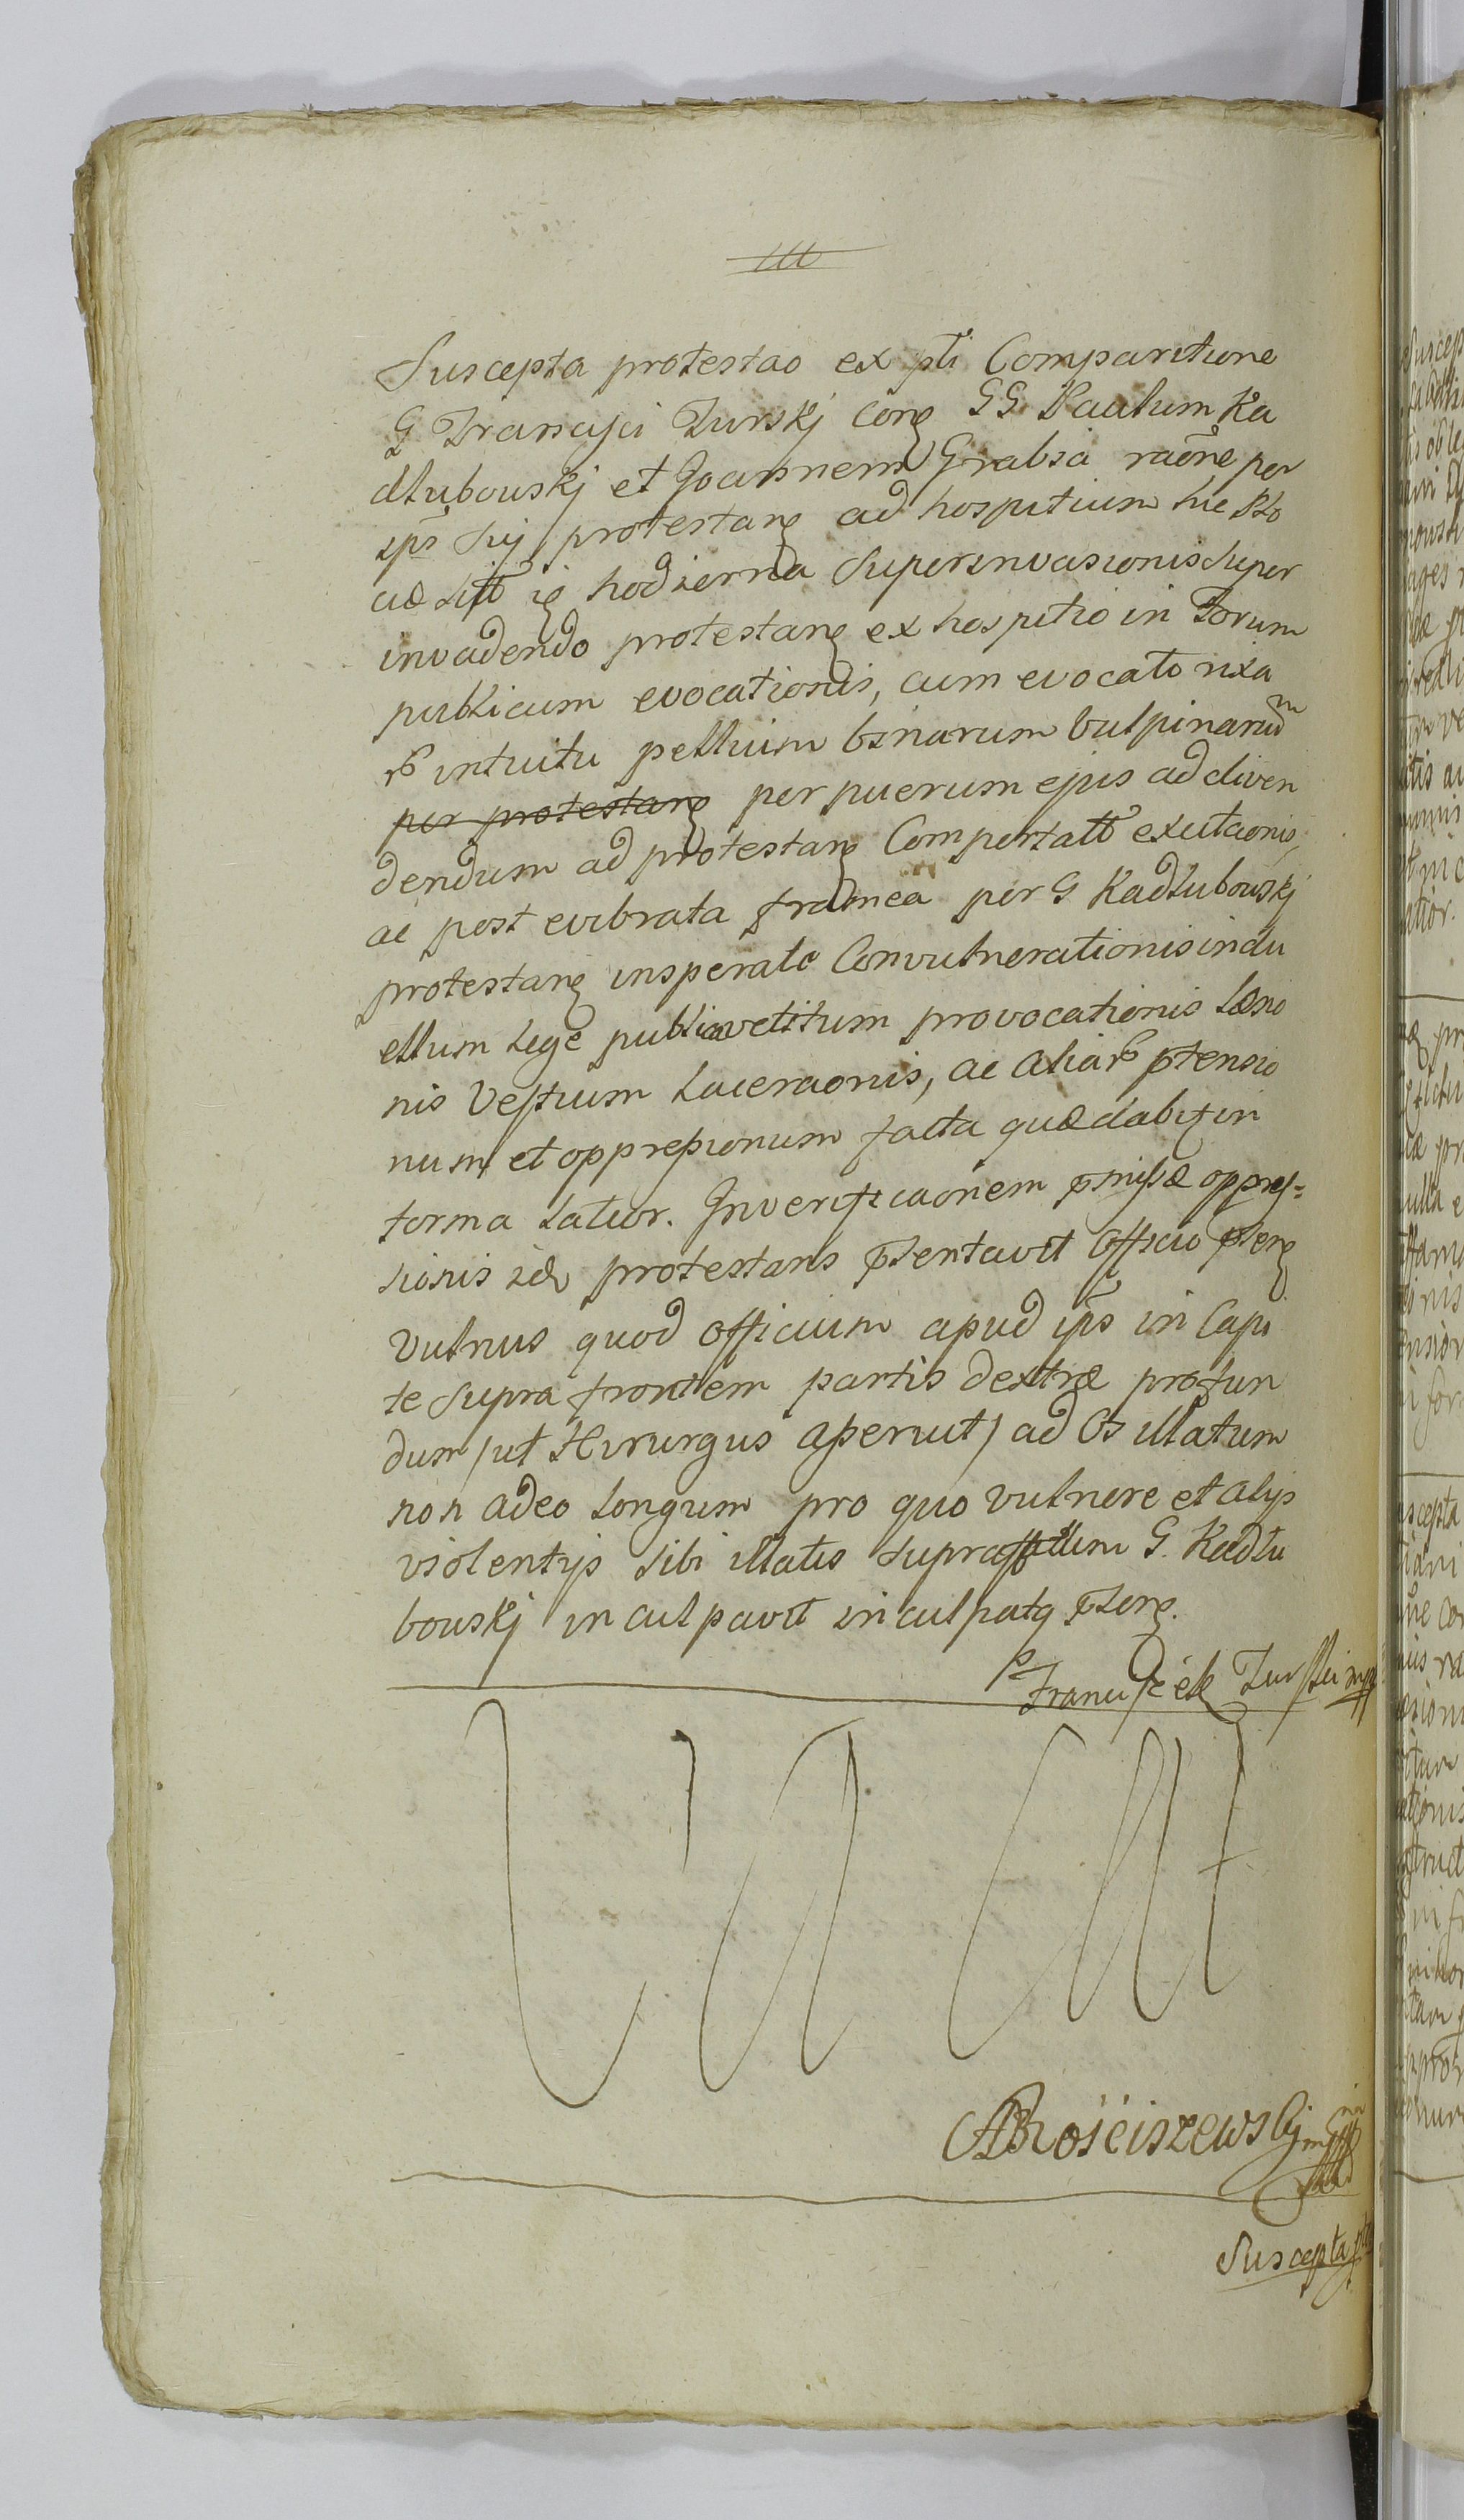 Suscepta protestao ex pti Comparitione
G Francisci Zurskj con GG Paulum Ka
dłubouskj et Joannem Grabia raone per
ips Sij protestan ad hospitium hic Plo
cæ Sitt hodierna Superinvasionis Super
invadendo protestan ex hospitio in Forum
publicum evocationis, cum evocato rixa
rõ intuitu pellium binarum Vulpinarum
per protestan per puerum ejus ad diven
dendum ad protestan Comportatt excitaonis
ac post evibrata framea per G Kadłubouskj
protestan insperate Convulnerationis in du
ellum Lege publica vetitum provocationis Læsio
nis Vestium Laceraonis, ac aliarõ ptensio
num et oppressionum facta quæ dabit in
forma Latior. In verificaonem pmissæ oppres=
sionis protestans ptentavit Officio pten
Vulnus quod officium apud ips in Capi
te Supra frontem partis dextræ profun
dum /ut Hirurgus aperuit/ ad Os illatum
non adeo Longum pro quo vulnere et alijs
violentijs Sibi illatis G. Kadłu
bouskj inculpavit inculpatq pten.
Franciszek Zurski mp
Rościszewskj mp
Suscepta